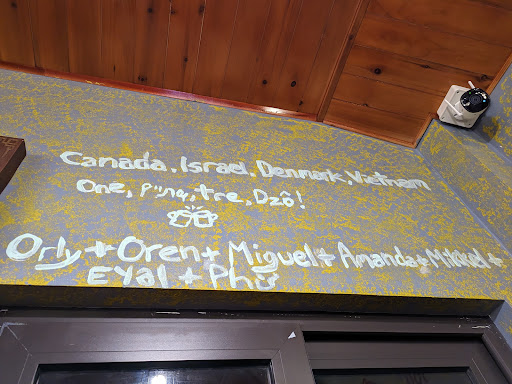 Canada, Israel, Denmark, Vietnam
One, tre, Dzô!
Orly + Oren + Miguel + Amanda + Mikkel +
EYal + Phú